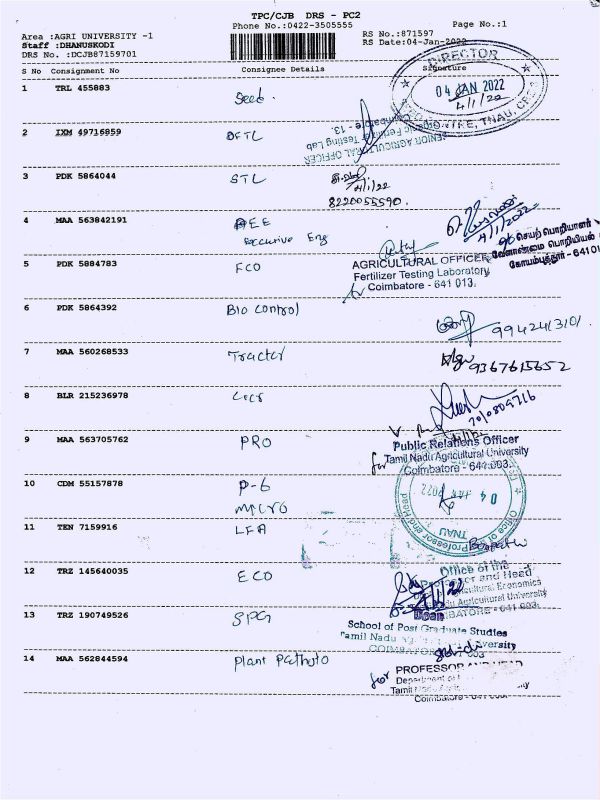 TPC/CJB DRS - PC2
Phone No.:0422-3505555
Page No.:1
Area :AGRI UNIVERSITY -1
Staff :DHANUSKODI
DRS No. :DCJB87159701
RS No.:871597
RS Date:04-Jan-2022
S No Consignment No Consignee Details Signature
DIRECTOR
04 JAN 2022
4/1/22
CENTRE, TNAU, CBE
1 TRL 455883 Seed
SENIOR AGRICULTURAL OFFICER
Testing Lab
Coimbatore - 13.
2 IXM 49716859 OFTL
3 PDK 5864044 STL
4/1/22
8220055590.
4 MAA 563842191 AEE
Executive Eng
4/1/2022
செயற் பொறியாளர்
வேளாண்மை பொறியியல்
கோயம்புத்தூர் - 64100
5 PDK 5884783 FCO
AGRICULTURAL OFFICER
Fertilizer Testing Laboratory
for Coimbatore - 641 013.
6 PDK 5864392 Bio control
7 MAA 560268533 Tractor
9367615652
8 BLR 215236978
9 MAA 563705762 PRO
Public Relations Officer
for Tamil Nadu Agricultural University
Coimbatore - 641 003.
10 CDM 55157878 P-6
micro
04 JAN 2022
Office of Professor and Head
TNAU
11 TEN 7159916 LFA
12 TRZ 145640035 ECO
Office of the
Professor and Head
Agricultural Economics
Agricultural University
COIMBATORE - 641 003.
13 TRZ 190749526 SPG
Dean
School of Post Graduate Studies
Tamil Nadu Agricultural University
COIMBATORE - 641 003
14 MAA 562844594 Plant Patholo
for PROFESSOR AND HEAD
Department of
Tamil Nadu
Coimbatore - 641 003.